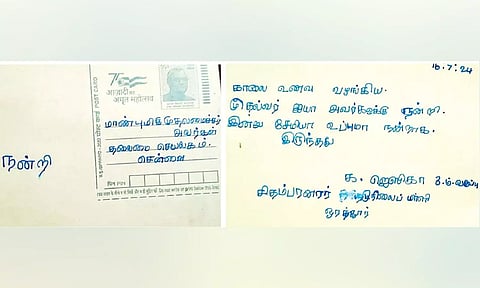 நன்றி
75
आज़ादी का
अमृत महोत्सव
POST CARD
மாண்புமிகு முதலமைச்சர்
அவர்கள்
தலைமை செயலகம்.
சென்னை
पिन PIN
16.7.24
காலை உணவு வழங்கிய
முதல்வர் ஐயா அவர்களுக்கு நன்றி.
இன்று சேமியா உப்புமா நன்றாக
இருந்தது
க. ஜெஸிகா 3.ம் வகுப்பு
சிதம்பரனார் நடுநிலைப் பள்ளி
ஓரத்தூர்